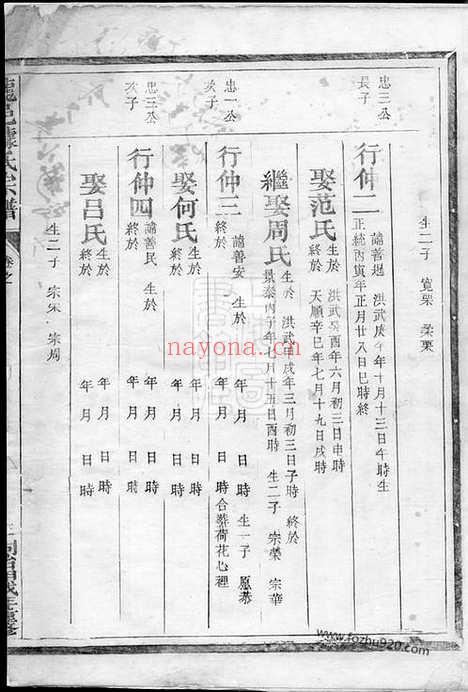 生二子 寬栗 柔栗
忠三公
長子
行仲二 諱善遇 洪武庚午年十月十三日午時生
正統丙寅年正月廿八日巳時終
娶范氏 生於 洪武癸酉年六月初三日申時
終於 天順辛巳年七月十九日戌時
繼娶周氏 生於 洪武甲戌年三月初三日子時 終於
景泰丙子年七月十五日酉時 生二子 宗榮 宗華
忠一公
次子
行仲三 諱善安 生於 年 月 日 時 生一子 愿恭
終於 年 月 日 時合葬荷花心裡
娶何氏 生於 年 月 日 時
終於 年 月 日 時
忠三公
次子
行仲四 諱善民 生於 年 月 日 時
終於 年 月 日 時
娶呂氏 生於 年 月 日 時
終於 年 月 日 時
生二子 宗宋 宗周
氏宗譜
nayona.cn
www.fozhu920.com